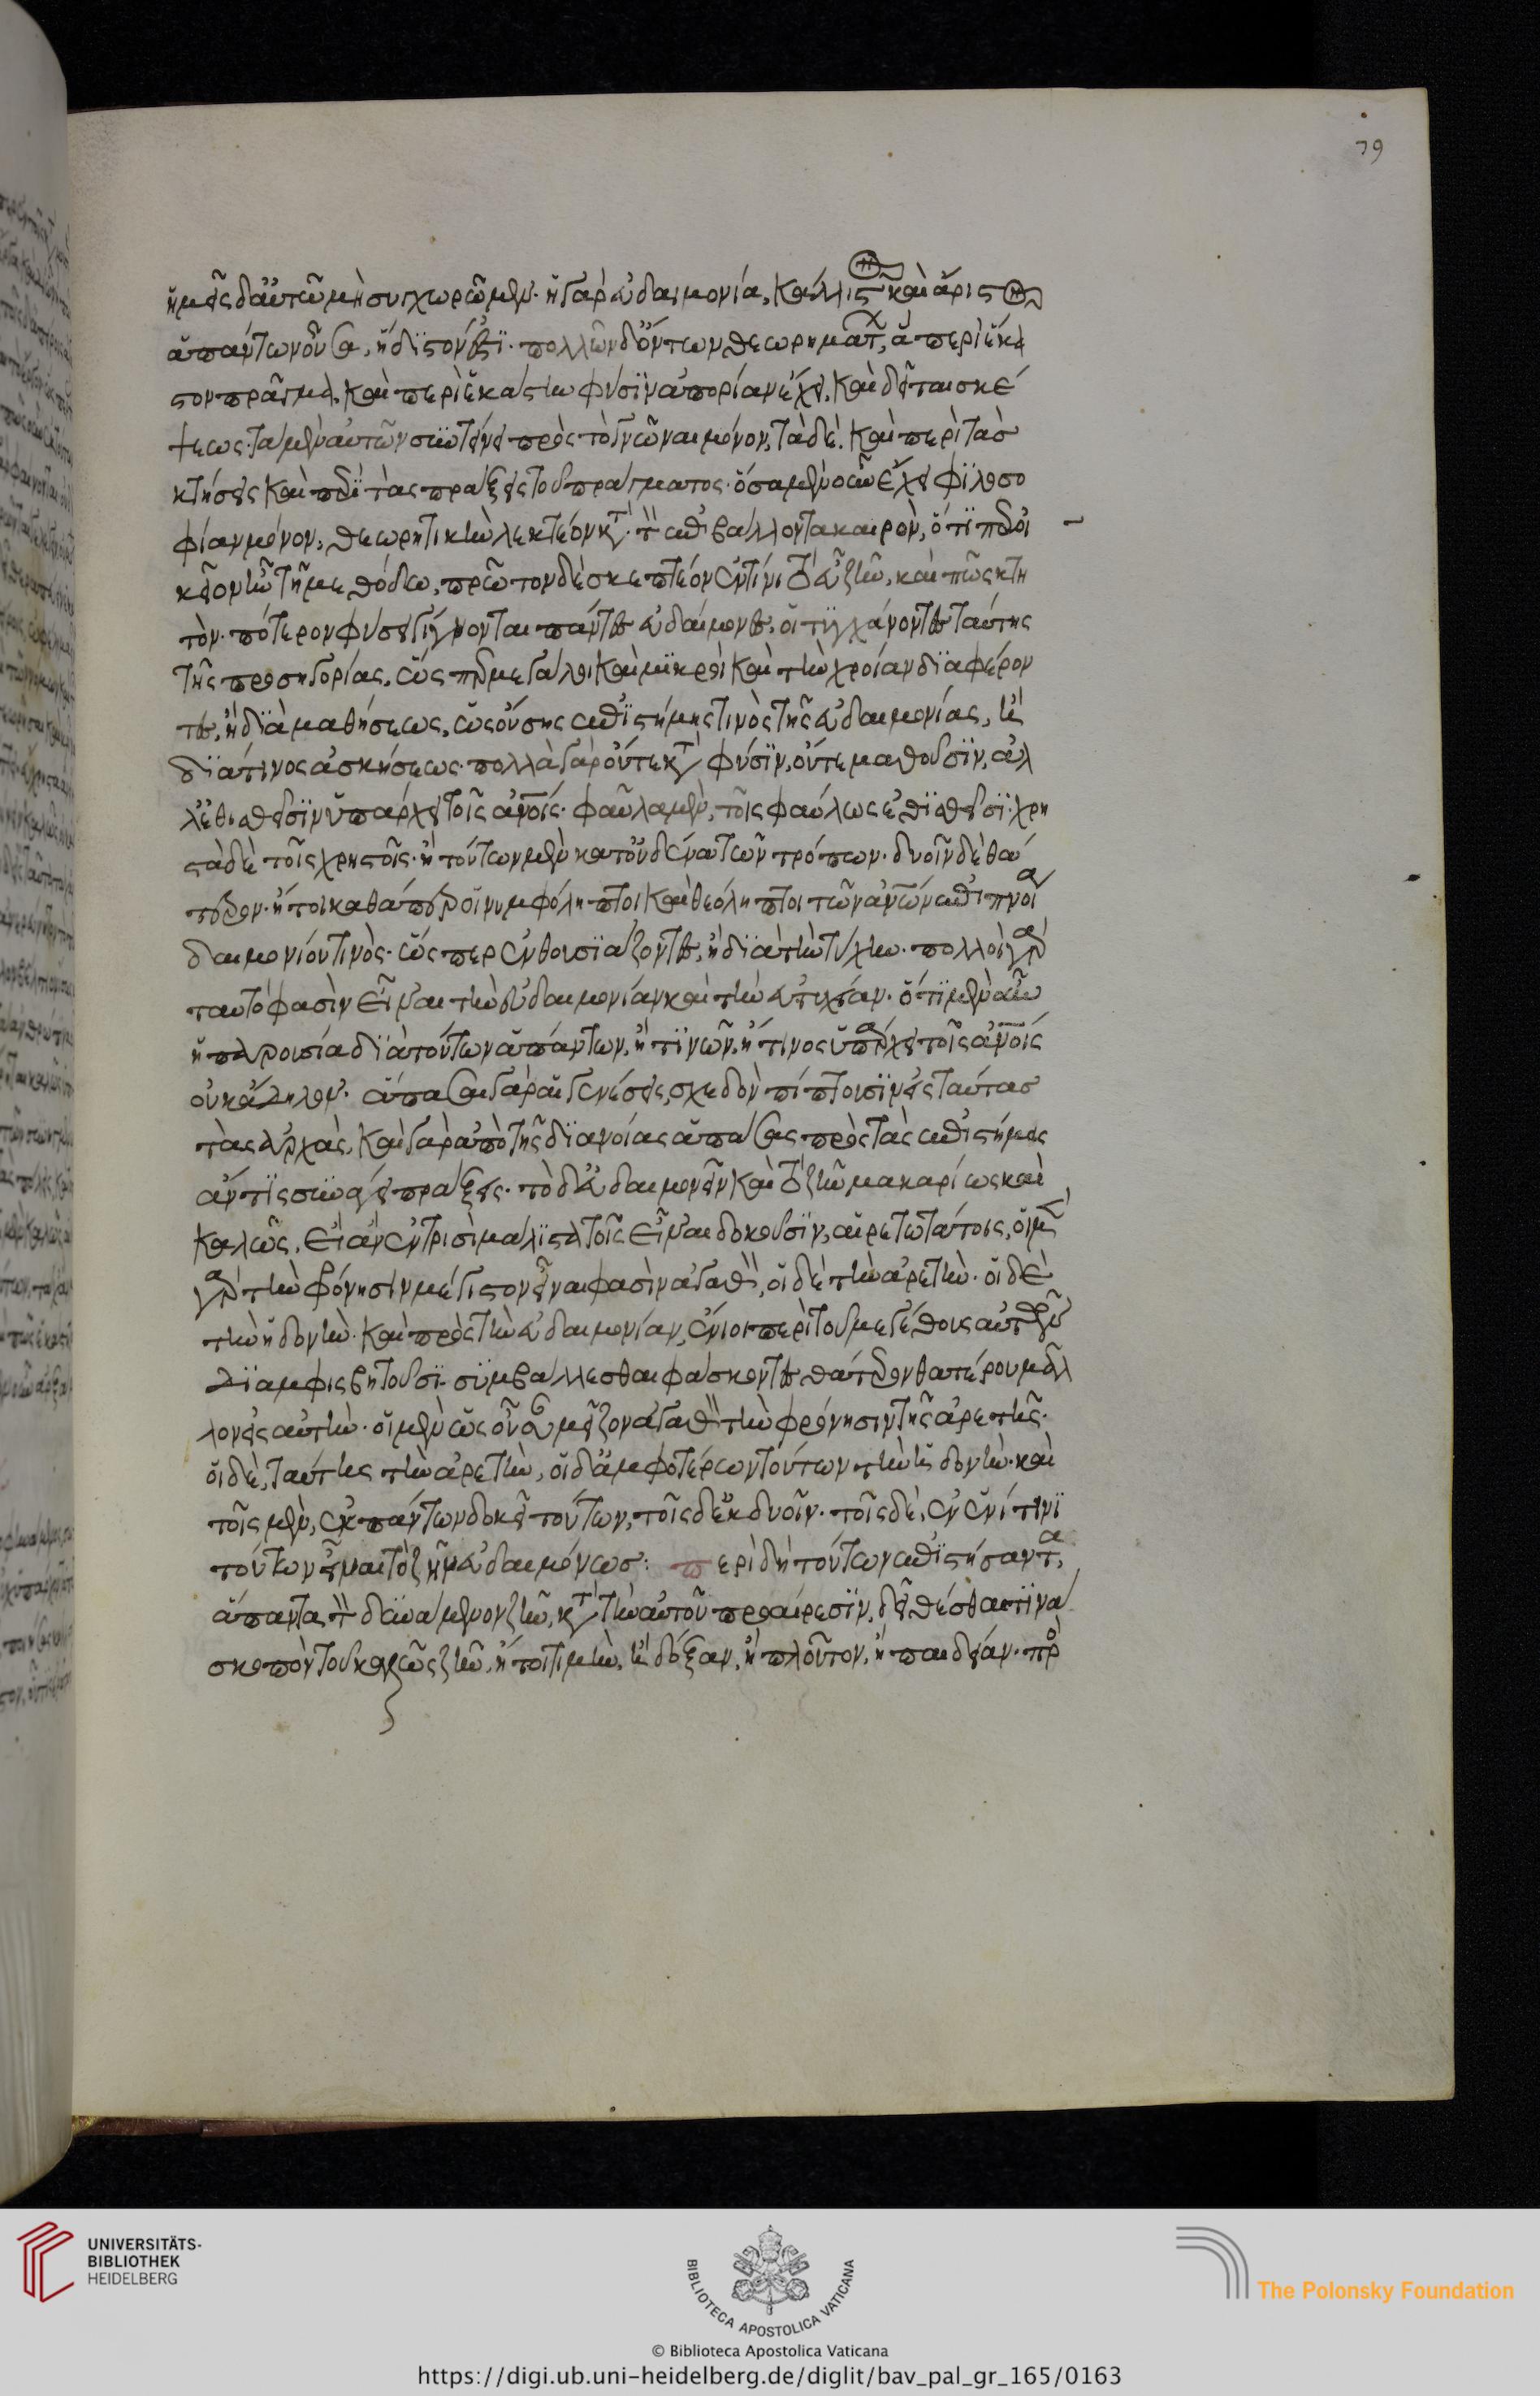 79
ἡμεῖς δ' αὐτῶ μὴ συγχωρῶμεν· ἡ γὰρ εὐδαιμονία, κάλλιστον καὶ ἄριστον
ἁπάντων οὖσα, ἥδιστον ἐστί· πολλῶν δ' ὄντων θεωρημάτων, ἃ περὶ ἕκα
στον πρᾶγμα, καὶ περὶ ἑκάστην φύσιν ἀπορίαν ἔχει, καὶ δεῖται σκέ
ψεως· τὰ μὲν αὐτῶν συντείνει πρὸς τὸ γνῶναι μόνον, τὰ δὲ, καὶ περὶ τὰς
κτήσεις καὶ περὶ τὰς πράξεις τοῦ πράγματος· ὅσα μὲν οὖν ἔχει φιλοσο
φίαν μόνον, θεωρητικὴν λεκτέον κατὰ τὸν ἐπιβάλλοντα καιρὸν, ὅτι περ οἰ
κεῖον ἦν τῆ μεθόδω, πρῶτον δὲ σκεπτέον ἐν τίνι τὸ εὖ ζῆν, καὶ πῶς κτη
τὸν· πότερον φύσει γίγνονται πάντες εὐδαίμονες, οἱ τυγχάνοντες ταύτης
τῆς προσηγορίας, ὥσπερ μεγάλοι καὶ μικροὶ καὶ τὴν χροίαν διαφέρον
τες, ἢ διὰ μαθήσεως, ὡς οὔσης ἐπιστήμης τινὸς τῆς εὐδαιμονίας, ἢ
διά τινος ἀσκήσεως· πολλὰ γὰρ οὔτε κατὰ φύσιν, οὔτε μαθοῦσιν, ἀλ
λ' ἐθισθεῖσιν ὑπάρχει τοῖς ἀνοις· φαῦλα μὲν, τοῖς φαύλως ἐθισθεῖσι· χρη
στὰ δὲ τοῖς χρηστοῖς· ἢ τούτων μὲν κατ' οὐδένα τῶν τρόπων· δυοῖν δὲ θά
τερον· ἤτοι καθάπερ οἱ νυμφόληπτοι καὶ θεόληπτοι τῶν ἀνων ἐπιπνοία
δαιμονίου τινὸς· ὥσπερ ἐνθουσιάζοντες, ἢ διὰ τὴν τύχην· πολλοὶ γὰρ
ταυτό φασὶν εἶναι τὴν εὐδαιμονίαν καὶ τὴν εὐτυχίαν· ὅτι μὲν οὖν
ἡ παρουσία διὰ τούτων ἁπάντων, ἢ τινῶν, ἤ τινος ὑπάρχει τοῖς ἀνοις
οὐκ ἄδηλον· ἅπασαι γὰρ αἱ γενέσεις, σχεδὸν πίπτουσιν εἰς ταύτας
τὰς ἀρχὰς, καὶ γὰρ ἀπὸ τῆς διανοίας ἁπάσας πρὸς τὰς ἐπιστήμας
ἄν τις συναγάγοι πράξεις· τὸ δ' εὐδαιμονεῖν καὶ τὸ ζῆν μακαρίως καὶ
καλῶς, εἴη ἂν ἐν τρισὶ μάλιστα τοῖς εἶναι δοκοῦσιν, αἱρετωτάτοις, οἱ μὲν
γὰρ τὴν φρόνησιν μέγιστον εἶναι φασὶν ἀγαθὸν, οἱ δὲ τὴν ἀρετὴν· οἱ δὲ
τὴν ἡδονὴν· καὶ πρὸς τὴν εὐδαιμονίαν, ἔνιοι περὶ τοῦ μεγέθους αὐτῶν
διαμφισβητοῦσι· συμβάλλεσθαι φάσκοντες θάτερον θατέρου μᾶλ
λον εἰς αὐτὴν· οἱ μὲν ὡς οὖσαν μεῖζον ἀγαθὸν τὴν φρόνησιν τῆς ἀρετῆς·
οἱ δὲ, ταύτης τὴν ἀρετὴν, οἱ δ' ἀμφοτέρων τούτων τὴν ἡδονὴν· καὶ
τοῖς μὲν, ἐκ πάντων δοκεῖ τούτων, τοῖς δ' ἐκ δυοῖν· τοῖς δὲ, ἐν ἑνί τινι
τούτων εἶναι τὸ ζῆν εὐδαιμόνως: περὶ δὴ τούτων ἐπιστήσαντα,
ἅπαντα τὸν δυνάμενον ζῆν, κατὰ τὴν αὐτοῦ προαίρεσιν, δεῖ θέσθαι τινα
σκοπὸν τοῦ καλῶς ζῆν, ἤτοι τιμὴν, ἢ δόξαν, ἢ πλοῦτον, ἢ παιδείαν· πρὸ
UNIVERSITÄTS-
BIBLIOTHEK
HEIDELBERG
BIBLIOTECA APOSTOLICA VATICANA
The Polonsky Foundation
© Biblioteca Apostolica Vaticana
https://digi.ub.uni-heidelberg.de/diglit/bav_pal_gr_165/0163